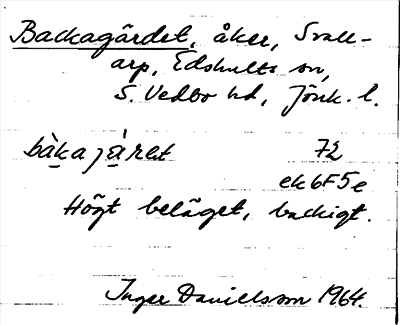 Backagärdet, åker, Svall-
arp, Edshults sn,
S. Vedbo hd, Jönk. l.
bàkajæ̀ret 72
ek 6F5e
Högt beläget, backigt.
Inger Danielsson 1964.